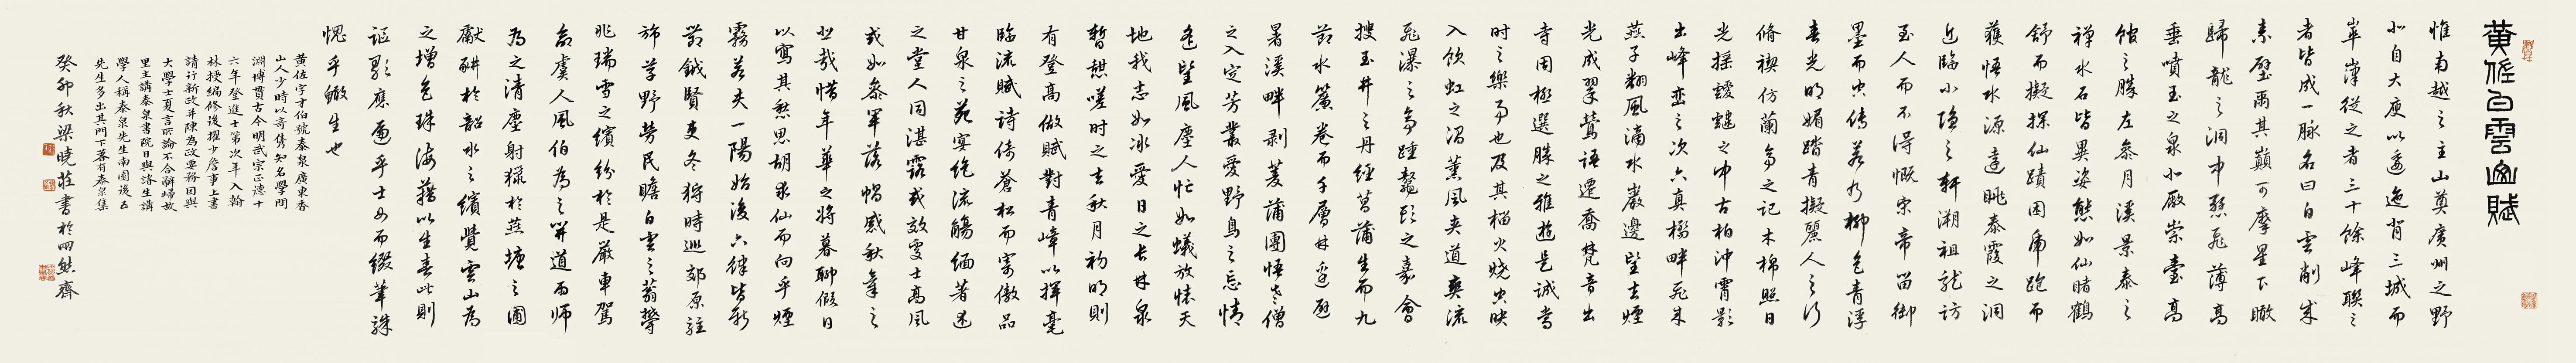 黃佐白雲山賦
惟南越之主山奠廣州之野
北自大庾以逶迤背三城而
崒嵂從之者三十餘峰聯之
者皆成一脈名曰白雲削成
素壁兩其巔可摩星下瞰
歸龍之洞中懸飛薄高
垂噴玉之泉北厰崇臺高
館之勝左泰月溪景泰之
禪水石皆異姿態如仙睹鶴
舒而擬探仙蹟因虎跑而
獲悟水源遠眺泰霞之洞
近臨小隱之軒溯祖龍訪
玉人而不得慨宗帝留御
墨而空傳若乃柳色青浮
春光明媚踏青擬麗人之行
脩禊仿蘭亭之記木棉照日
光搖靉靆之中古柏沖霄影
出峰巒之次六真橋畔飛來
燕子翻風滴水巖邊望去煙
光成翠鶯語遷喬梵音出
寺用極選勝之雅遊是誠當
時之樂事也及其榴火燒空映
入飲虹之沼薰風夾道爽流
飛瀑之亭踵鰲頭之嘉會
搜玉井之丹經菖蒲生而九
節水簾卷而千層林逭避
暑溪畔剥菱蒲團悟老僧
之入定芳叢愛野鳥之忘情
遙望風塵人忙如蟻放懷天
地我志如冰愛日之長林泉
暫憩嗟時之去秋月初明則
有登高做賦對青峰以揮毫
臨流賦詩倚蒼松而寄傲品
甘泉之苑宴絶流觴緬著述
之堂人同湛露或效處士高風
或如參軍落帽感秋氣之
悲哉惜年華之將暮聊假日
以寫其愁思胡求仙而向乎煙
霧若夫一陽始復六律皆新
節鉞賢吏冬狩時巡郊原駐
旆草野勞民瞻白雲之蓊鬱
兆瑞雪之繽紛於是嚴車駕
命虞人風伯為之開道雨師
為之清塵射獵於燕塘之圃
獻酬於韶水之繽覺雲山為
之增色珠海藉以生春此則
謳歌應遍乎士女而綴筆殊
愧乎鯫生也
黃佐字才伯號泰泉廣東香
山人少時以奇雋知名學問
淵博貫古今明武宗正德十
六年登進士第次年入翰
林授編修後擢少詹事上書
請行新政并陳為政要務因與
大學士夏言所論不合辭歸故
里主講泰泉書院日與諸生講
學人稱泰泉先生南園後五
先生多出其門下著有泰泉集
癸卯秋梁曉莊書於四無齋